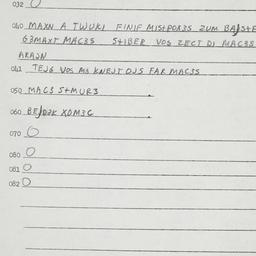 032
040 MAXN A TWUKI FINIF MIStPOR3S ZUM BAJStF
G3MAXT MAC3S StIBER VOS ZECT DI MAC3S
ARAJN
041 TEJG VOS MA KNEJT OJS FAR MAC3S
050 MAC3 StMUR3
060 BEJD3K XOM3C
070
080
081
082